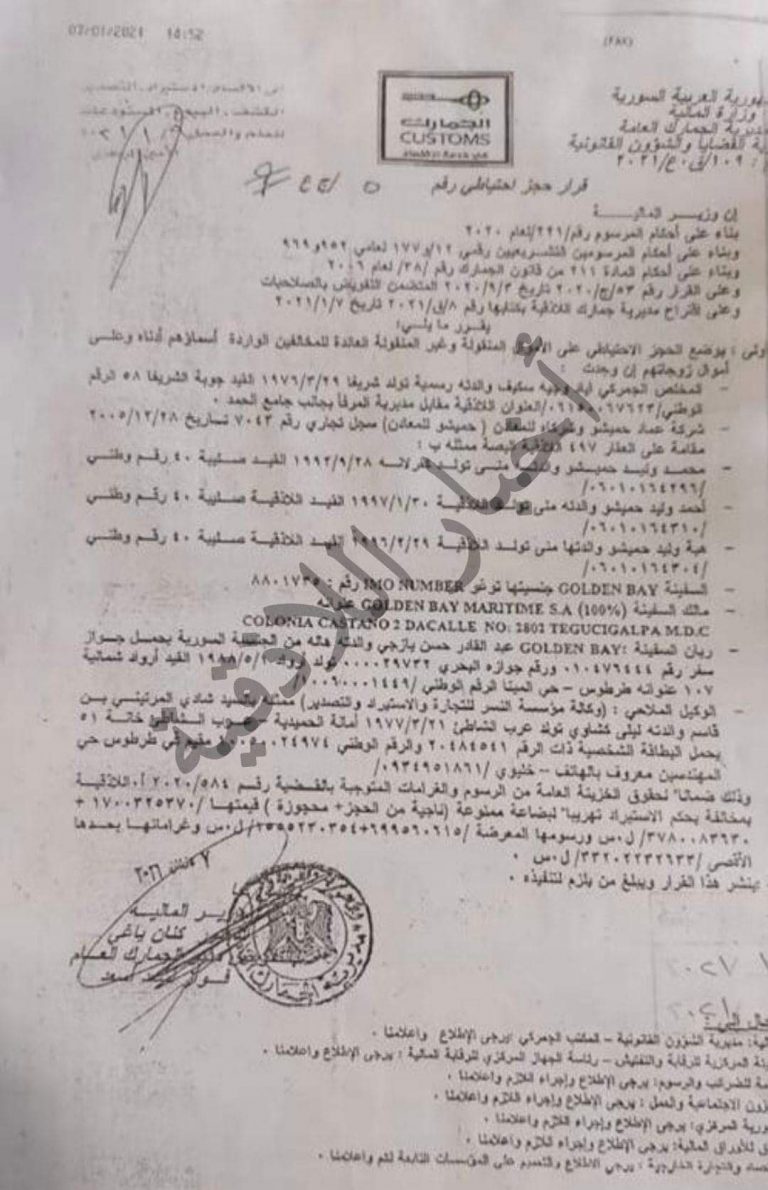 07/01/2021 14:52
(٢٨٨)
الجمارك
CUSTOMS
في خدمة الاقتصاد
ـهورية العربية السورية
وزارة المالية
ـديرية الجمارك العامة
ـية القضايا والشؤون القانونية
: ١٠٩/ق.ع/٢٠٢١
قرار حجز احتياطي رقم
إن وزير المالية
بناء على أحكام المرسوم رقم /٢٢١/ لعام ٢٠٢٠
وبناء على أحكام المرسومين التشريعيين رقمي ١٢/و١٧٧ لعامي ٩٥٢و٩٦٩
وبناء على أحكام المادة ٢١١ من قانون الجمارك رقم /٣٨/ لعام ٢٠٠٦
وعلى القرار رقم ٥٣/ج/٢٠٢٠ تاريخ ٢٠٢٠/٩/٣ المتضمن التفويض بالصلاحيات
وعلى اقتراح مديرية جمارك اللاذقية بكتابها رقم ٨/ق/٢٠٢١ تاريخ ٢٠٢١/١/٧
يقرر ما يلي:
ـولى : يوضع الحجز الاحتياطي على الأموال المنقولة وغير المنقولة العائدة للمخالفين الواردة أسماؤهم أدناه وعلى
أموال زوجاتهم إن وجدت :
– المخلص الجمركي اياد وجيه سكيف والدته رسمية تولد شريفا ١٩٧٦/٣/٢٩ القيد جوبة الشريفا ٥٨ الرقم
الوطني/ العنوان اللاذقية مقابل مديرية المرفأ بجانب جامع الحمد .
– شركة عماد حميشو وشركاه للمعادن ( حميشو للمعادن) سجل تجاري رقم ٧٠٤٣ تاريخ ٢٠٠٥/١٢/٢٨
مقامة على العقار ٤٩٧ اللاذقية البصة ممثله ب :
– محمد وليد حميشو والدته منى تولد ١٩٩٢/٩/٢٨ القيد اللاذقية صليبة ٤٠ رقم وطني
/٠٦٠١٠١٦٤٢٩٦/
– أحمد وليد حميشو والدته منى تولد اللاذقية ١٩٩٧/١/٣٠ القيد اللاذقية صليبة ٤٠ رقم وطني
/٠٦٠١٠١٦٤٣١٠/
– هبة وليد حميشو والدتها منى تولد اللاذقية ١٩٩٦/٢/٢٩ القيد اللاذقية صليبة ٤٠ رقم وطني
/٠٦٠١٠١٦٤٣٠٤/
– السفينة GOLDEN BAY جنسيتها توغو IMO NUMBER رقم : ٨٨٠١٧٣٥
– مالك السفينة GOLDEN BAY MARITIME S.A (100%) عنوانه
COLONIA CASTANO 2 DACALLE NO: 2802 TEGUCIGALPA M.D.C
– ربان السفينة :GOLDEN BAY عبد القادر حسن يازجي والدته هاله من الجنسية السورية يحمل جواز
سفر رقم ٠١٠٤٧٦٤٤٤ ورقم جوازه البحري ٠٠٠٠٢٩٧٣٢ تولد أرواد ١٩٨٨/٥/١ القيد أرواد شمالية
١٠٧ عنوانه طرطوس – حي المينا الرقم الوطني /١٠٠٦٠٠٠١٤٤٩/
– الوكيل الملاحي : (وكالة مؤسسة النسر للتجارة والاستيراد والتصدير) ممثله بالسيد شادي المرتيني بن
قاسم والدته ليلى كشاوي تولد عرب الشاطئ ١٩٧٧/٣/٢١ أمانة الحميدية – عرب الشاطئ خانة ٥١
يحمل البطاقة الشخصية ذات الرقم ٢٠٤٨٤٥٤١ والرقم الوطني مقيم في طرطوس حي
المهندسين معروف بالهاتف – خليوي /٠٩٣٤٩٥١٨٦١/
وذلك ضمانا" لحقوق الخزينة العامة من الرسوم والغرامات المتوجبة بالقضية رقم ٢٠٢٠/٥٨٤ أ.اللاذقية
بمخالفة بحكم الاستيراد تهريبا" لبضاعة ممنوعة (ناجية من الحجز+ محجوزة ) قيمتها /١٧٠٠٣٢٥٣٧٠ +
٣٧٨٠٠٨٣٦٣٠/ ل.س ورسومها المعرضة /٦٩٩٥٦٠٦١٥+ ل.س وغراماتها بحدها
الأقصى /٣٣٢٠٢٢٣٢٦٣٣/ ل.س .
: ينشر هذا القرار ويبلغ من يلزم لتنفيذه .
وزير المالية
كنان ياغي
مدير الجمارك العام
فواز أسعد
أنصار اللاذقية
ـالية: مديرية الشؤون القانونية – المكتب الجمركي :يرجى الإطلاع وإعلامنا .
ـيئة المركزية للرقابة والتفتيش – رئاسة الجهاز المركزي للرقابة المالية : يرجى الإطلاع وإعلامنا .
ـة للضرائب والرسوم: يرجى الإطلاع وإجراء اللازم وإعلامنا .
ـؤون الاجتماعية والعمل : يرجى الإطلاع وإجراء اللازم وإعلامنا .
ـورية المركزي: يرجى الإطلاع وإجراء اللازم وإعلامنا .
ـق للأوراق المالية: يرجى الإطلاع وإجراء اللازم وإعلامنا .
ـصاد والتجارة الخارجية : يرجى الاطلاع والتعميم على المؤسسات التابعة لكم وإعلامنا .